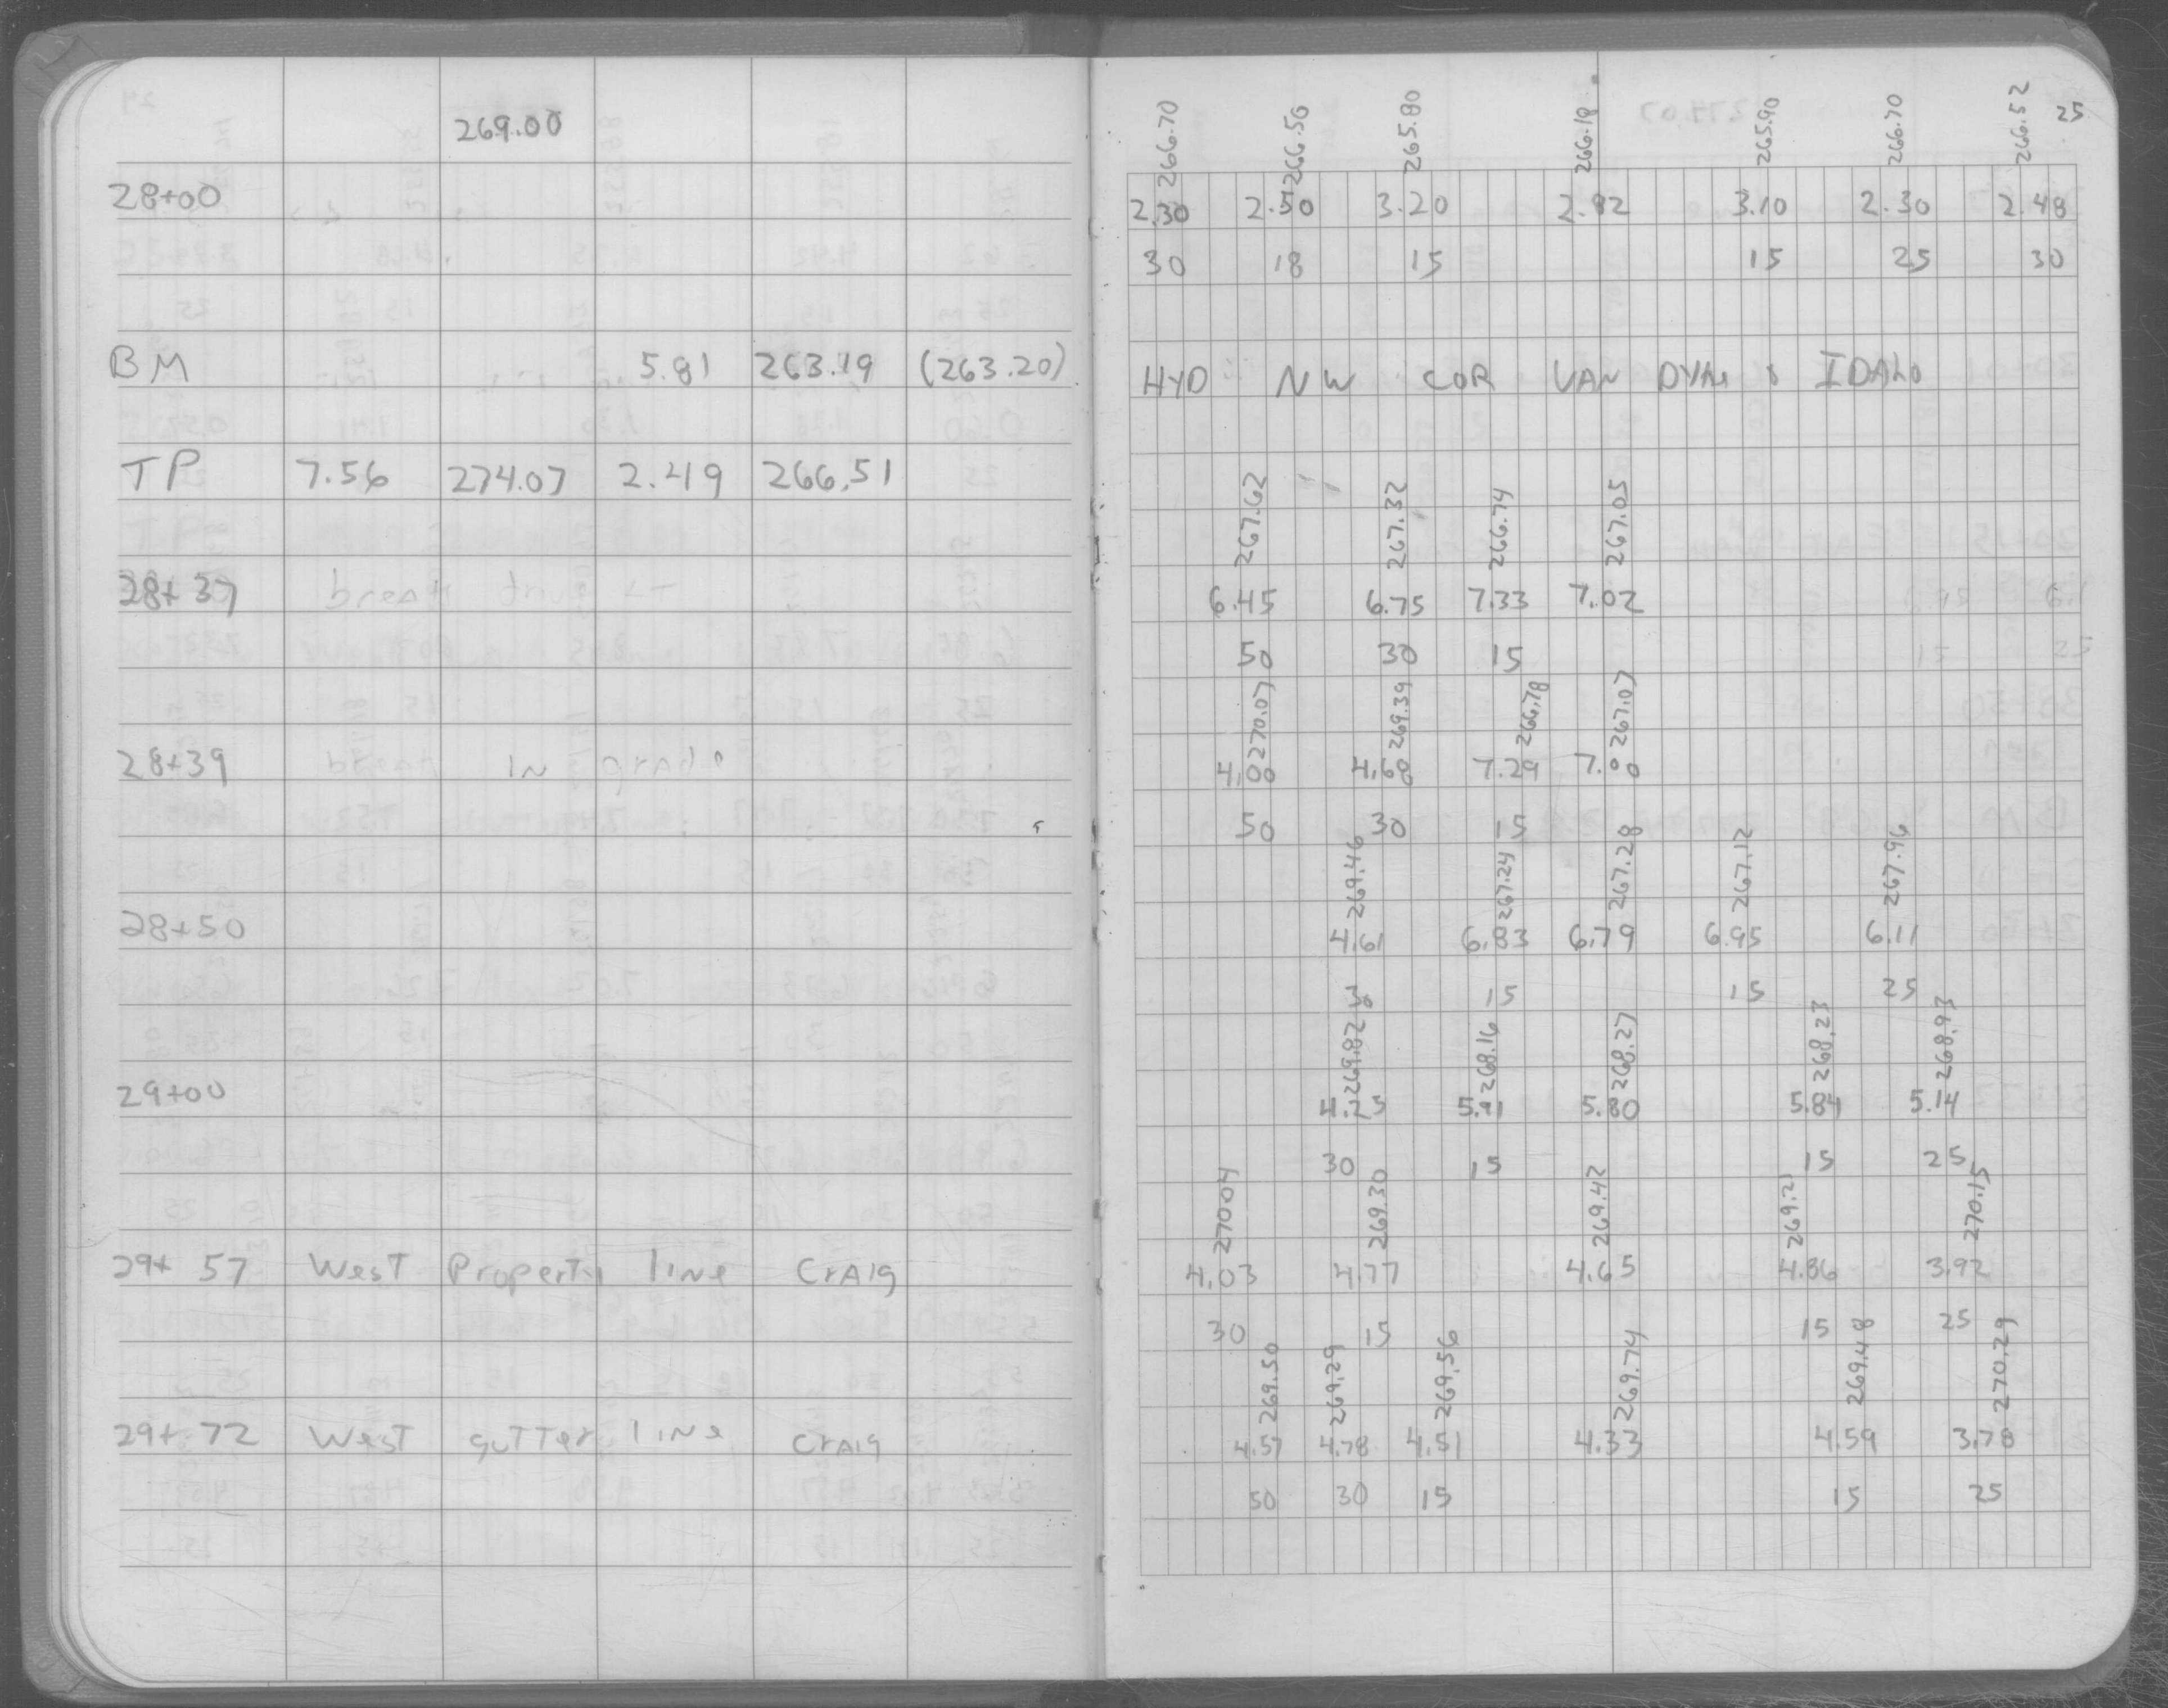 269.00
28+00
BM 5.81 263.19 (263.20)
TP 7.56 274.07 2.49 266.51
28+37 break
28+39 break in grade
28+50
29+00
29+57 West Property line Craig
29+72 West gutter line Craig
25
266.70 266.50 265.80 266.18 265.90 266.70 266.52
2.30 2.50 3.20 2.82 3.10 2.30 2.48
30 18 15 15 25 30
HYD NW COR VAN DYke & IDAho
267.62 267.32 266.74 267.05
6.45 6.75 7.33 7.02
50 30 15
270.07 269.39 266.78 267.07
4.00 4.68 7.29 7.00
50 30 15
269.46 267.24 267.28 267.12 267.96
4.61 6.83 6.79 6.95 6.11
30 15 15 25
269.82 268.16 268.27 268.23 268.93
4.25 5.91 5.80 5.84 5.14
30 15 15 25
270.04 269.30 269.42 269.21 270.15
4.03 4.77 4.65 4.86 3.92
30 15 15 25
269.50 269.29 269.56 269.74 269.48 270.29
4.57 4.78 4.51 4.33 4.59 3.78
50 30 15 15 25